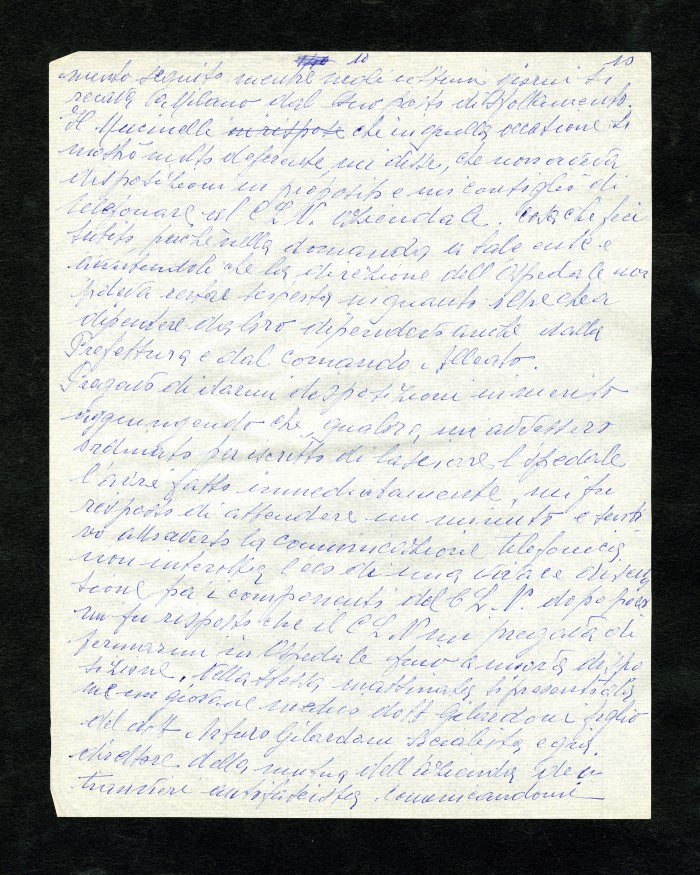 10 10
mento seguito mentre negli ultimi giorni si
recava a Milano dal suo posto di sfollamento.
Il Mucinelli mi rispose che in quella occasione si
mostrò molto deferente mi disse, che non aveva
disposizioni in proposito e mi consigliò di
telefonare al C.L.N. aziendale. Cosa che feci
subito, perché nella domanda a tale ente e
avvertendoli che la direzione dell'Ospedale non
poteva restare in quanto oltre che a
dipendere da loro dipendeva anche dalla
Prefettura e dal comando Alleato.
Pregavo di darmi disposizioni in merito
aggiungendo che, qualora mi avessero
ordinato per iscritto di lasciare l'ospedale
l'avrei fatto immediatamente, mi fu
risposto di attendere un minuto e senti
vo attraverso la comunicazione telefonica,
non interrotta, l'eco di una vivace discus
sione fra i componenti del C.L.N. dopo poco
mi fu risposto che il C.L.N. mi pregava di
fermarmi in Ospedale fino a nuova dispo
sizione. Nella stessa mattinata si presentò da
me un giovane medico dott Gilardoni figlio
del dott Arturo Gilardoni socialista e già
direttore della mutua dell'azienda
tranviari antifascista comunicandomi